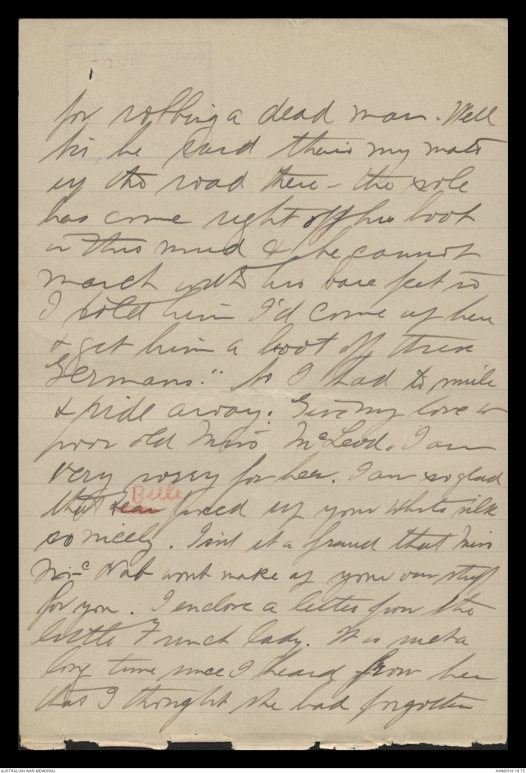 for robbing a dead man. Well
Sir, he said there's my mate
up the road there – the sole
has come right off his boot
in this mud & he cannot
march with his bare feet so
I told him I'd come up here
& get him a boot off these
Germans." So I had to smile
& ride away. Give my love to
poor old Miss McLeod. I am
very sorry for her. I am so glad
that Belle fixed up your white silk
so nicely. Isn't it a fraud that Miss
McNab wont make up your own stuff
for you. I enclose a letter from the
little French lady. It is
long time since I heard from her
I thought she had forgotten
AUSTRALIAN WAR MEMORIAL